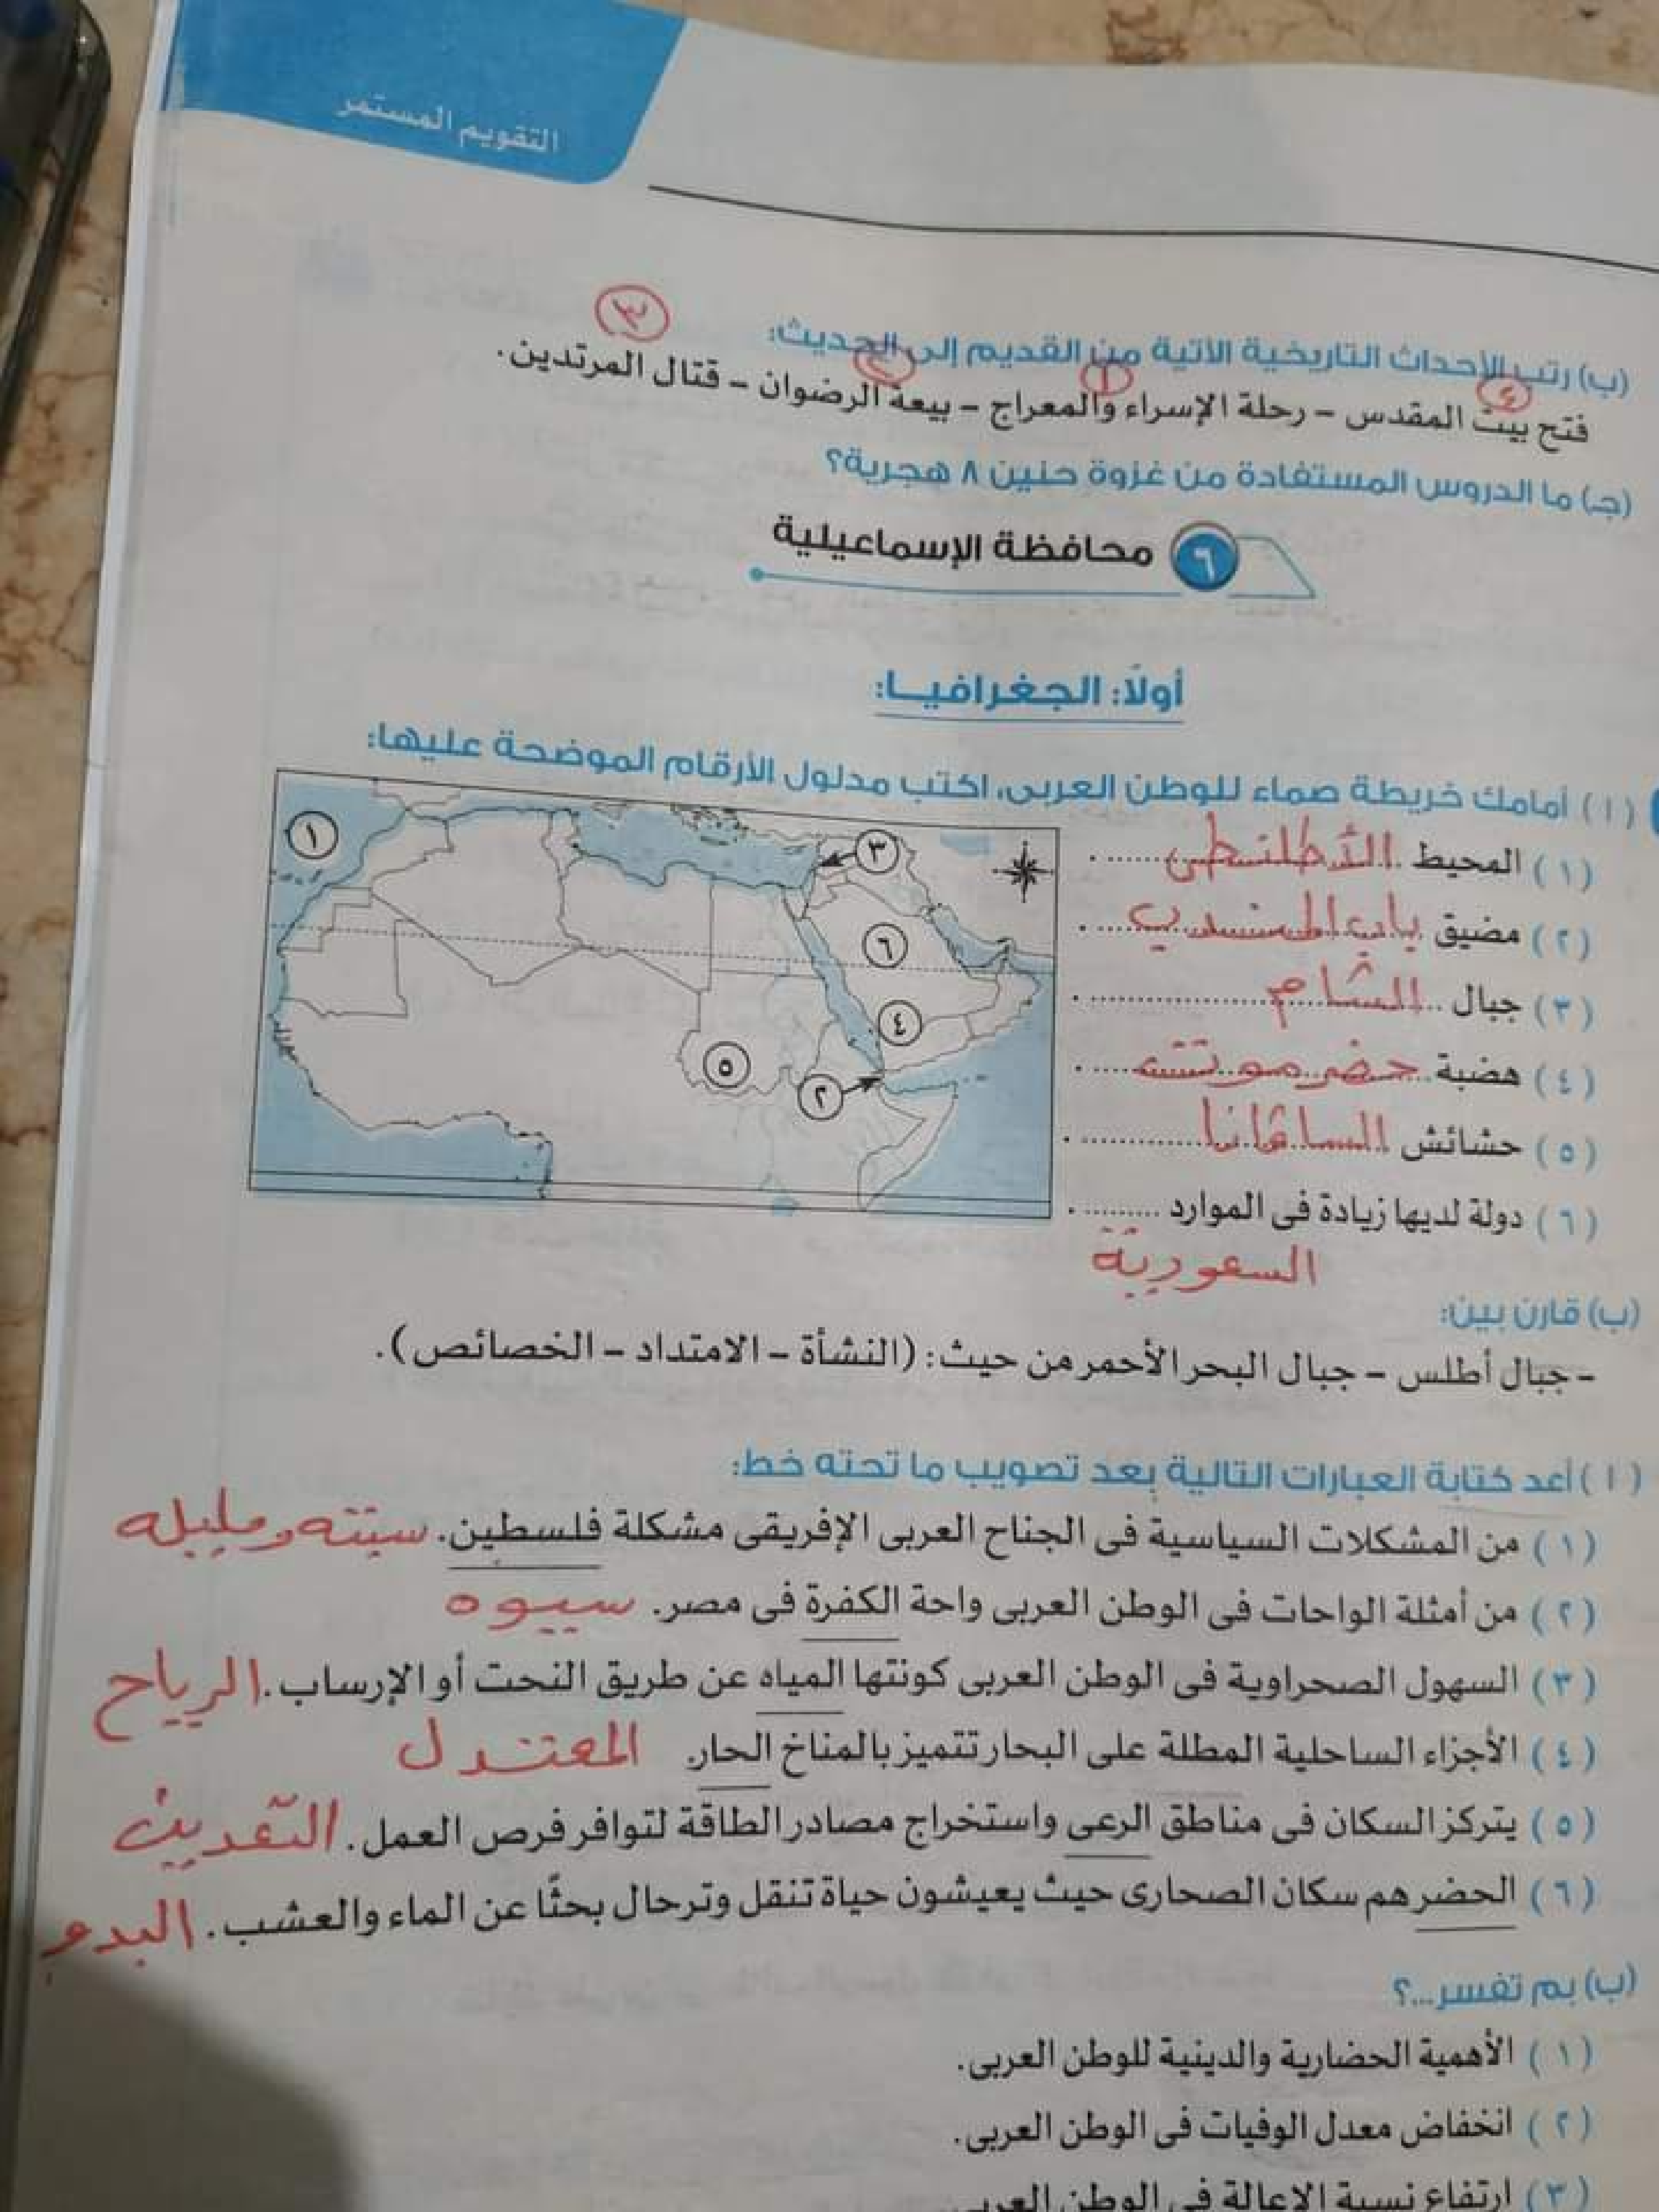 التقويم المستمر
(ب) رتب الأحداث التاريخية الآتية من القديم إلى الحديث:
٤ ١ ٢ ٣
فتح بيت المقدس - رحلة الإسراء والمعراج - بيعة الرضوان - قتال المرتدين.
(جـ) ما الدروس المستفادة من غزوة حنين ٨ هجرية؟
٦ محافظة الإسماعيلية
أولاً: الجغرافيا:
(١) أمامك خريطة صماء للوطن العربى، اكتب مدلول الأرقام الموضحة عليها:
(١) المحيط الأطلنطى
(٢) مضيق باب المندب
(٣) جبال الشام
(٤) هضبة حضرموت
(٥) حشائش السافانا
(٦) دولة لديها زيادة فى الموارد
السعودية
١
٣
٦
٤
٥
٢
(ب) قارن بين:
- جبال أطلس - جبال البحر الأحمر من حيث: (النشأة - الامتداد - الخصائص).
(١) أعد كتابة العبارات التالية بعد تصويب ما تحته خط:
(١) من المشكلات السياسية فى الجناح العربى الإفريقى مشكلة فلسطين. سبته ومليله
(٢) من أمثلة الواحات فى الوطن العربى واحة الكفرة فى مصر. سيوه
(٣) السهول الصحراوية فى الوطن العربى كونتها المياه عن طريق النحت أو الإرساب. الرياح
(٤) الأجزاء الساحلية المطلة على البحار تتميز بالمناخ الحار. المعتدل
(٥) يتركز السكان فى مناطق الرعى واستخراج مصادر الطاقة لتوافر فرص العمل. التعدين
(٦) الحضر هم سكان الصحارى حيث يعيشون حياة تنقل وترحال بحثًا عن الماء والعشب. البدو
(ب) بم تفسر...؟
(١) الأهمية الحضارية والدينية للوطن العربى.
(٢) انخفاض معدل الوفيات فى الوطن العربى.
(٣) ارتفاع نسبة الإعالة فى الوطن العربى.